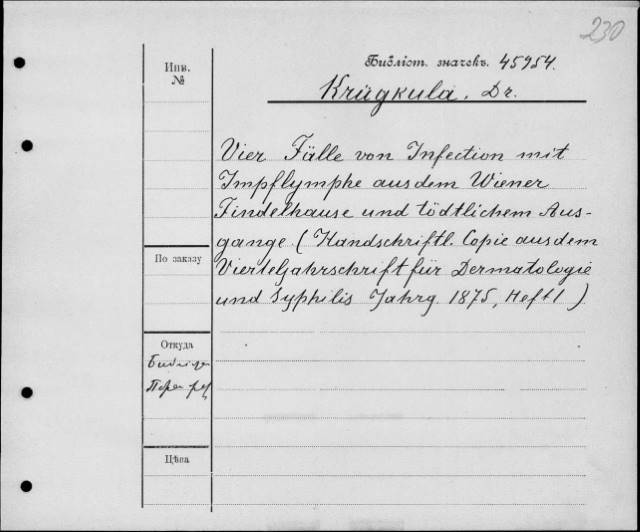 230
Инв. №
Библіот. значекъ. 45954.
Krügkula, Dr.
Vier Fälle von Infection mit
Impflymphe aus dem Wiener
Findelhause und tödtlichem Aus-
gange (Handschriftl. Copie aus dem
Vierteljahrschrift für Dermatologie
und Syphilis Jahrg. 1875, Heft 1)
По заказу
Откуда
Цѣна